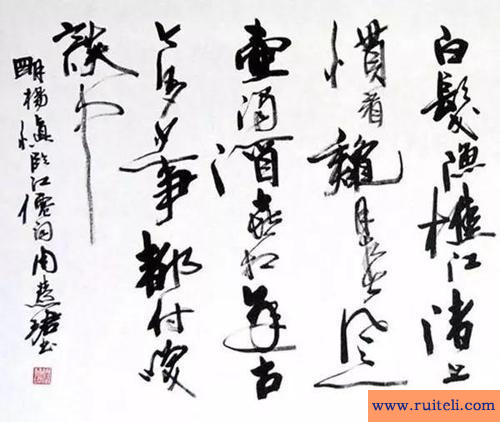 白髮漁樵江渚上
慣看龝月春風一
壺濁酒喜相逢古
今多少事都付咲
談中
明楊慎臨江僊詞周慧珺書
www.ruiteli.com